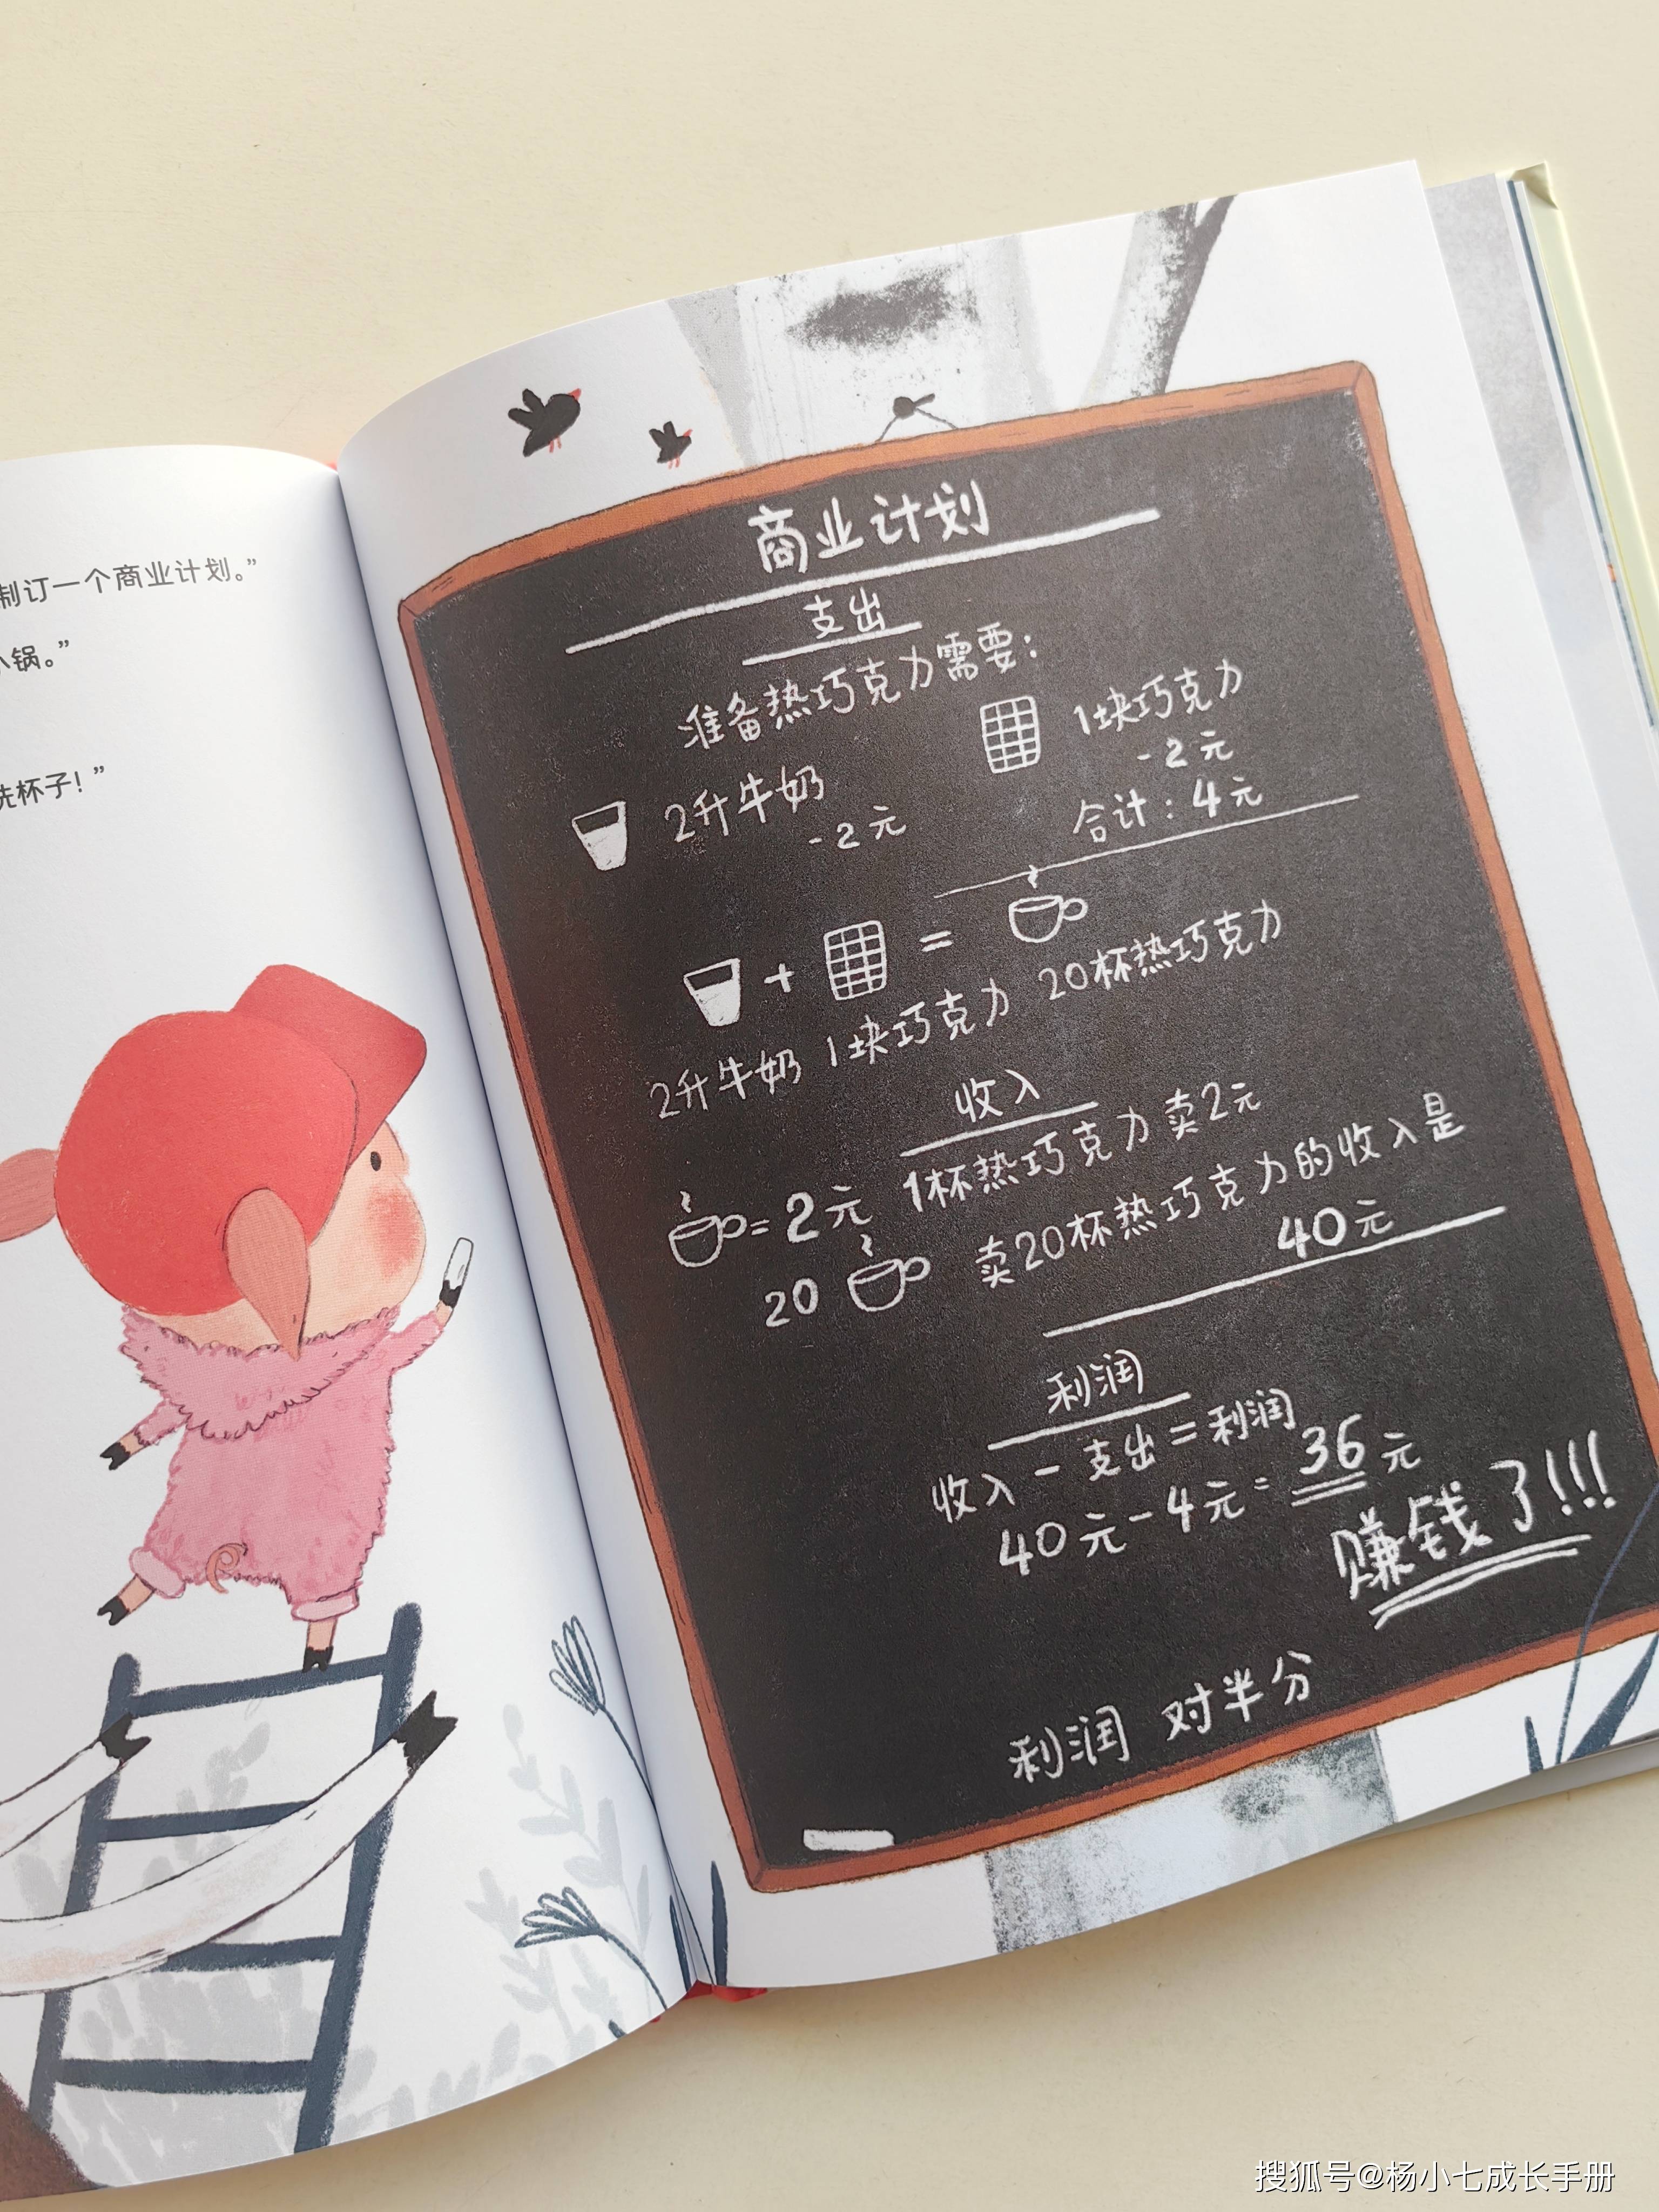 制订一个商业计划。”
锅。”
洗杯子！”
商业计划
支出
准备热巧克力需要：
2升牛奶
-2元
1块巧克力
-2元
合计：4元
+ =
2升牛奶 1块巧克力 20杯热巧克力
收入
=2元 1杯热巧克力卖2元
20 卖20杯热巧克力的收入是
40元
利润
收入-支出=利润
40元-4元=36元
赚钱了!!!
利润 对半分
搜狐号@杨小七成长手册